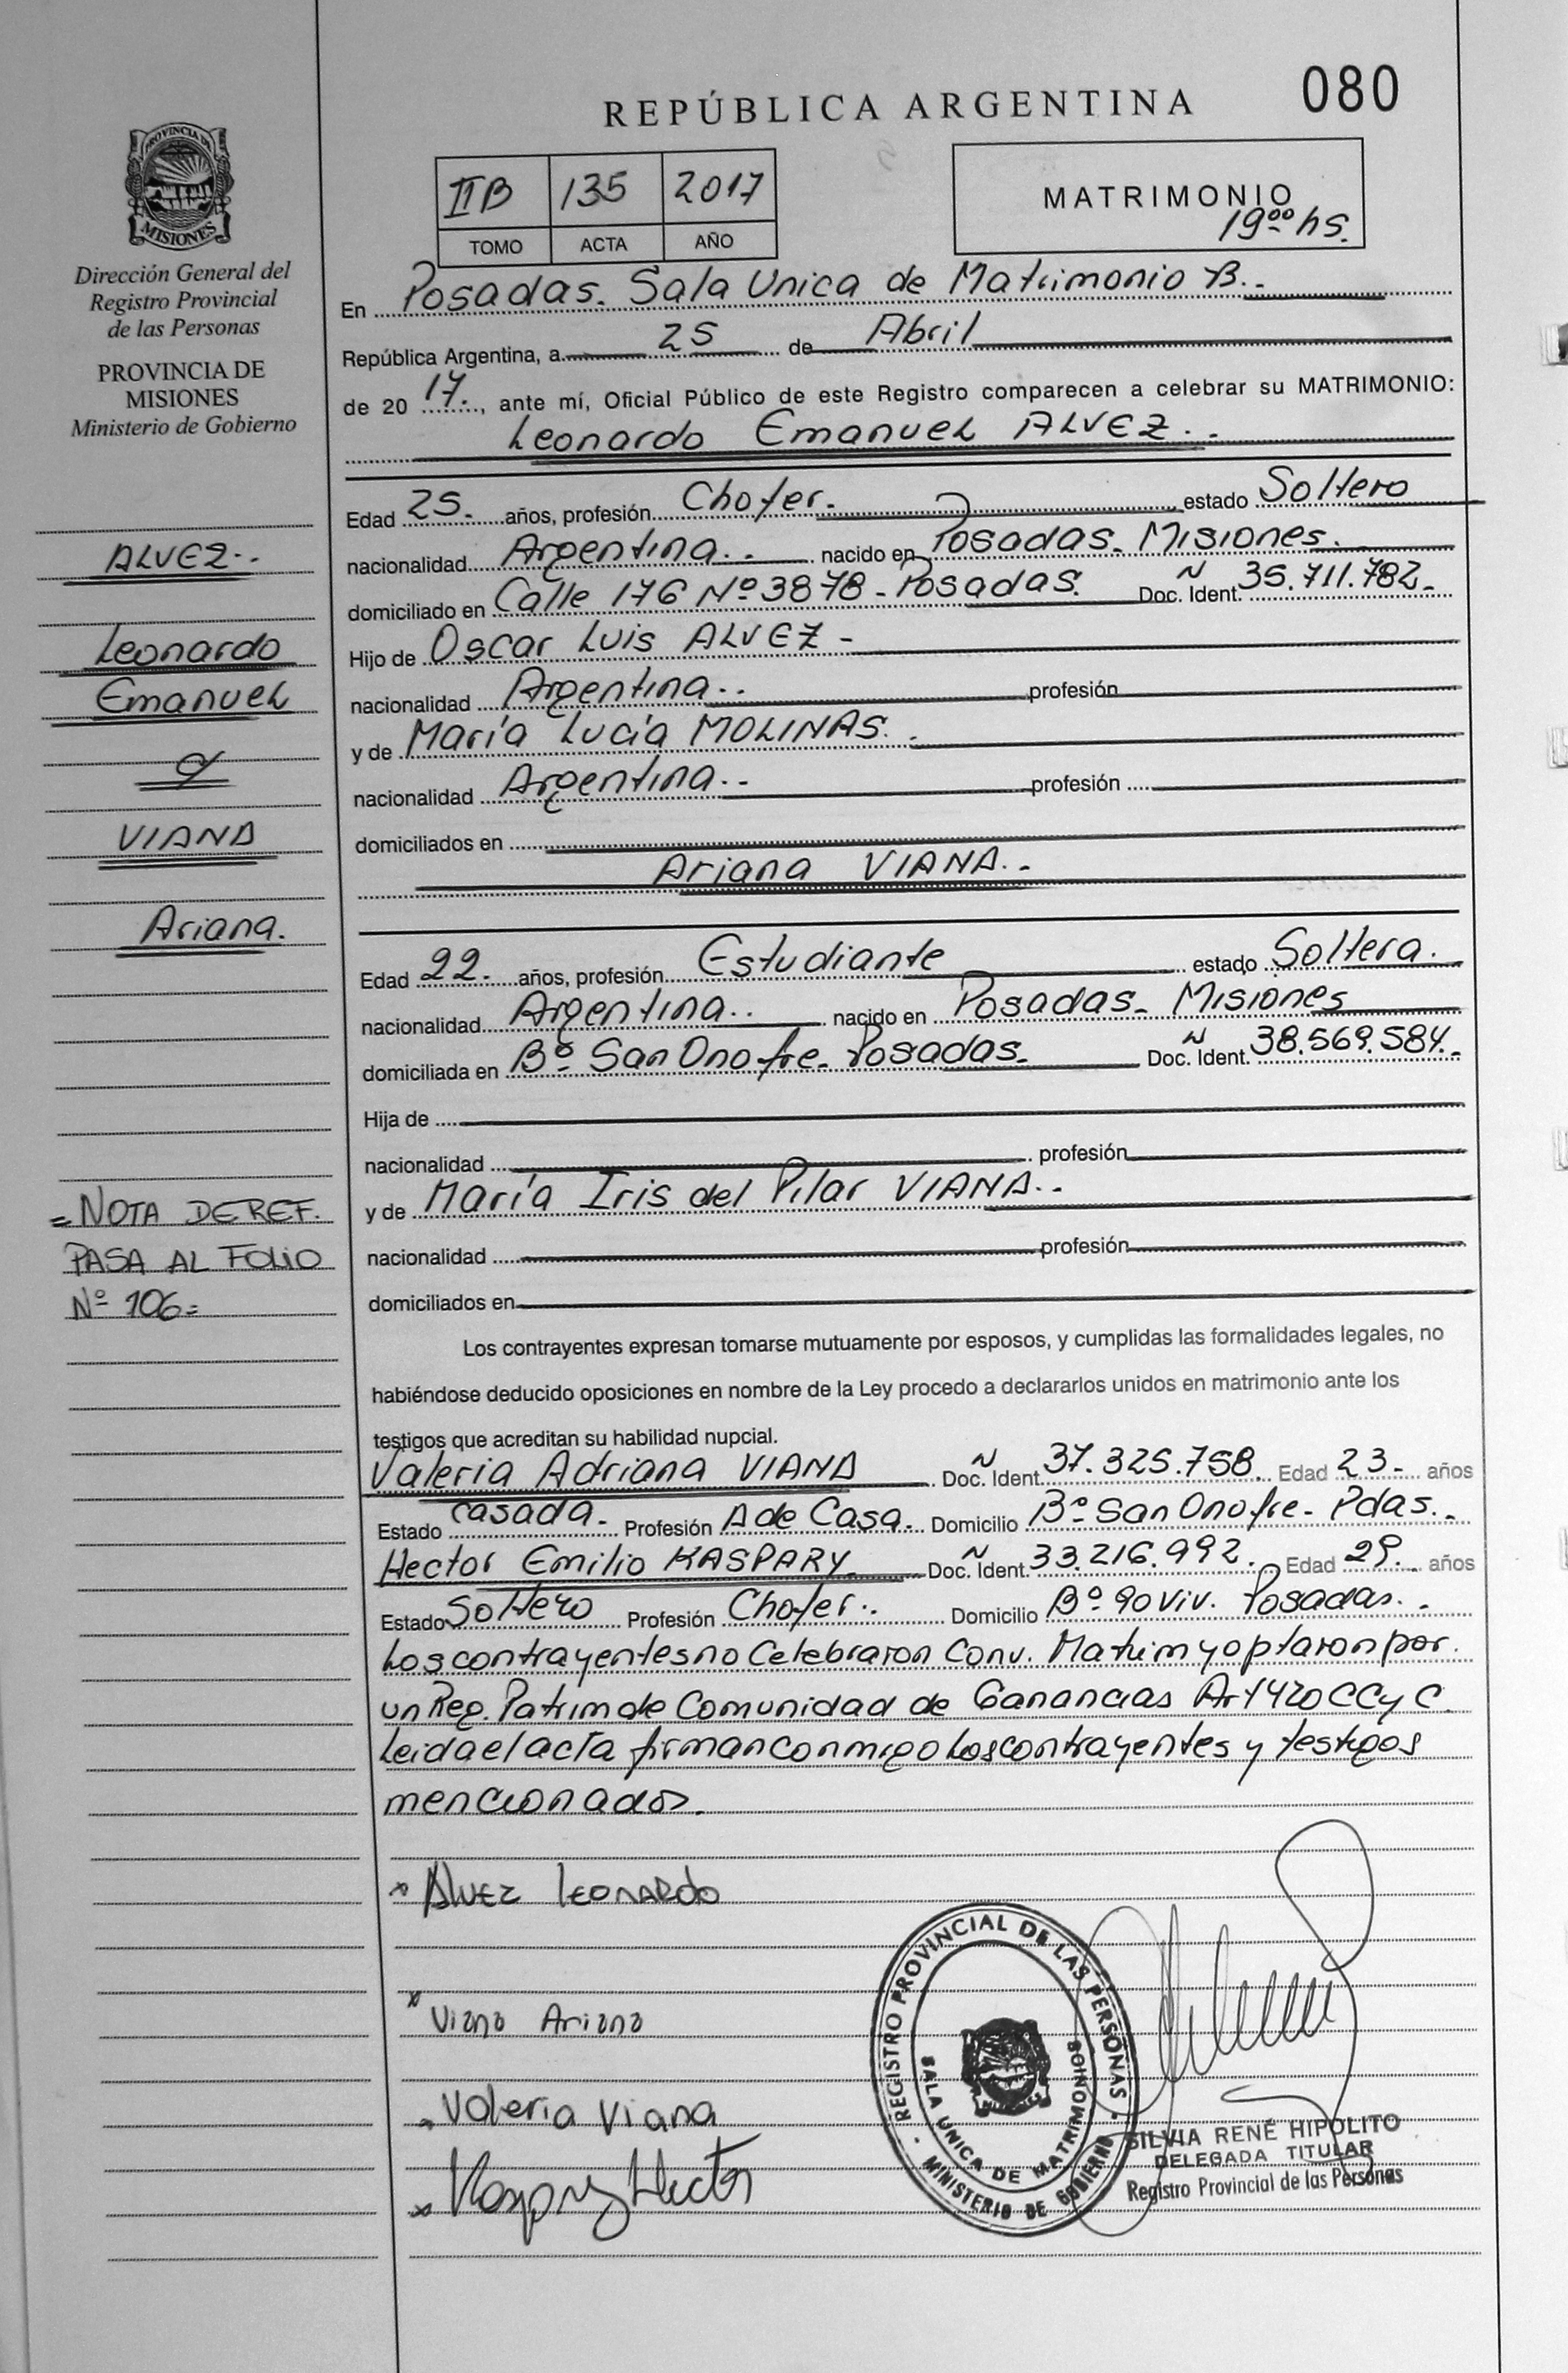 080
REPÚBLICA ARGENTINA
IIB 135 2017
TOMO ACTA AÑO
MATRIMONIO
19 00 hs.
PROVINCIA DE
MISIONES
Dirección General del
Registro Provincial
de las Personas
PROVINCIA DE
MISIONES
Ministerio de Gobierno
ALVEZ..
Leonardo
Emanuel
y
VIANA
Ariana.
=NOTA DE REF.
PASA AL FOLIO
Nº 106=
En Posadas. Sala Unica de Matrimonio B..
República Argentina, a 25 de Abril
de 20 17., ante mí, Oficial Público de este Registro comparecen a celebrar su MATRIMONIO:
Leonardo Emanuel ALVEZ..
Edad 25. años, profesión Chofer. estado Soltero
nacionalidad Argentina.. nacido en Posadas. Misiones.
domiciliado en Calle 176 Nº 3878 - Posadas. Doc. Ident. 35.711.782.
Hijo de Oscar Luis ALVEZ -
nacionalidad Argentina.. profesión
y de María Lucía MOLINAS..
nacionalidad Argentina.. profesión
domiciliados en
Ariana VIANA..
Edad 22. años, profesión Estudiante estado Soltera.
nacionalidad Argentina.. nacido en Posadas. Misiones
domiciliada en Bº San Onofre. Posadas. Doc. Ident. 38.569.584.
Hija de
nacionalidad profesión
y de María Iris del Pilar VIANA..
nacionalidad profesión
domiciliados en
Los contrayentes expresan tomarse mutuamente por esposos, y cumplidas las formalidades legales, no
habiéndose deducido oposiciones en nombre de la Ley procedo a declararlos unidos en matrimonio ante los
testigos que acreditan su habilidad nupcial.
Valeria Adriana VIANA Doc. Ident. 37.325.758. Edad 23. años
Estado casada. Profesión A de Casa. Domicilio Bº San Onofre. Pdas..
Hector Emilio KASPARY. Doc. Ident. 33.216.992. Edad 29. años
Estado Soltero Profesión Chofer.. Domicilio Bº 90 Viv. Posadas..
Los contrayentes no Celebraron Conv. Matrim y optaron por
un Reg. Patrim de Comunidad de Ganancias Art 420 CC y C.
Leida el acta firman conmigo Los contrayentes y testigos
mencionados.
x ALVEZ LEONARDO
x Viana Ariana
x Valeria Viana
x Kaspary Hector
REGISTRO PROVINCIAL DE LAS PERSONAS
SALA UNICA DE MATRIMONIOS
MINISTERIO DE GOBIERNO
SILVIA RENÉ HIPOLITO
DELEGADA TITULAR
Registro Provincial de las Personas